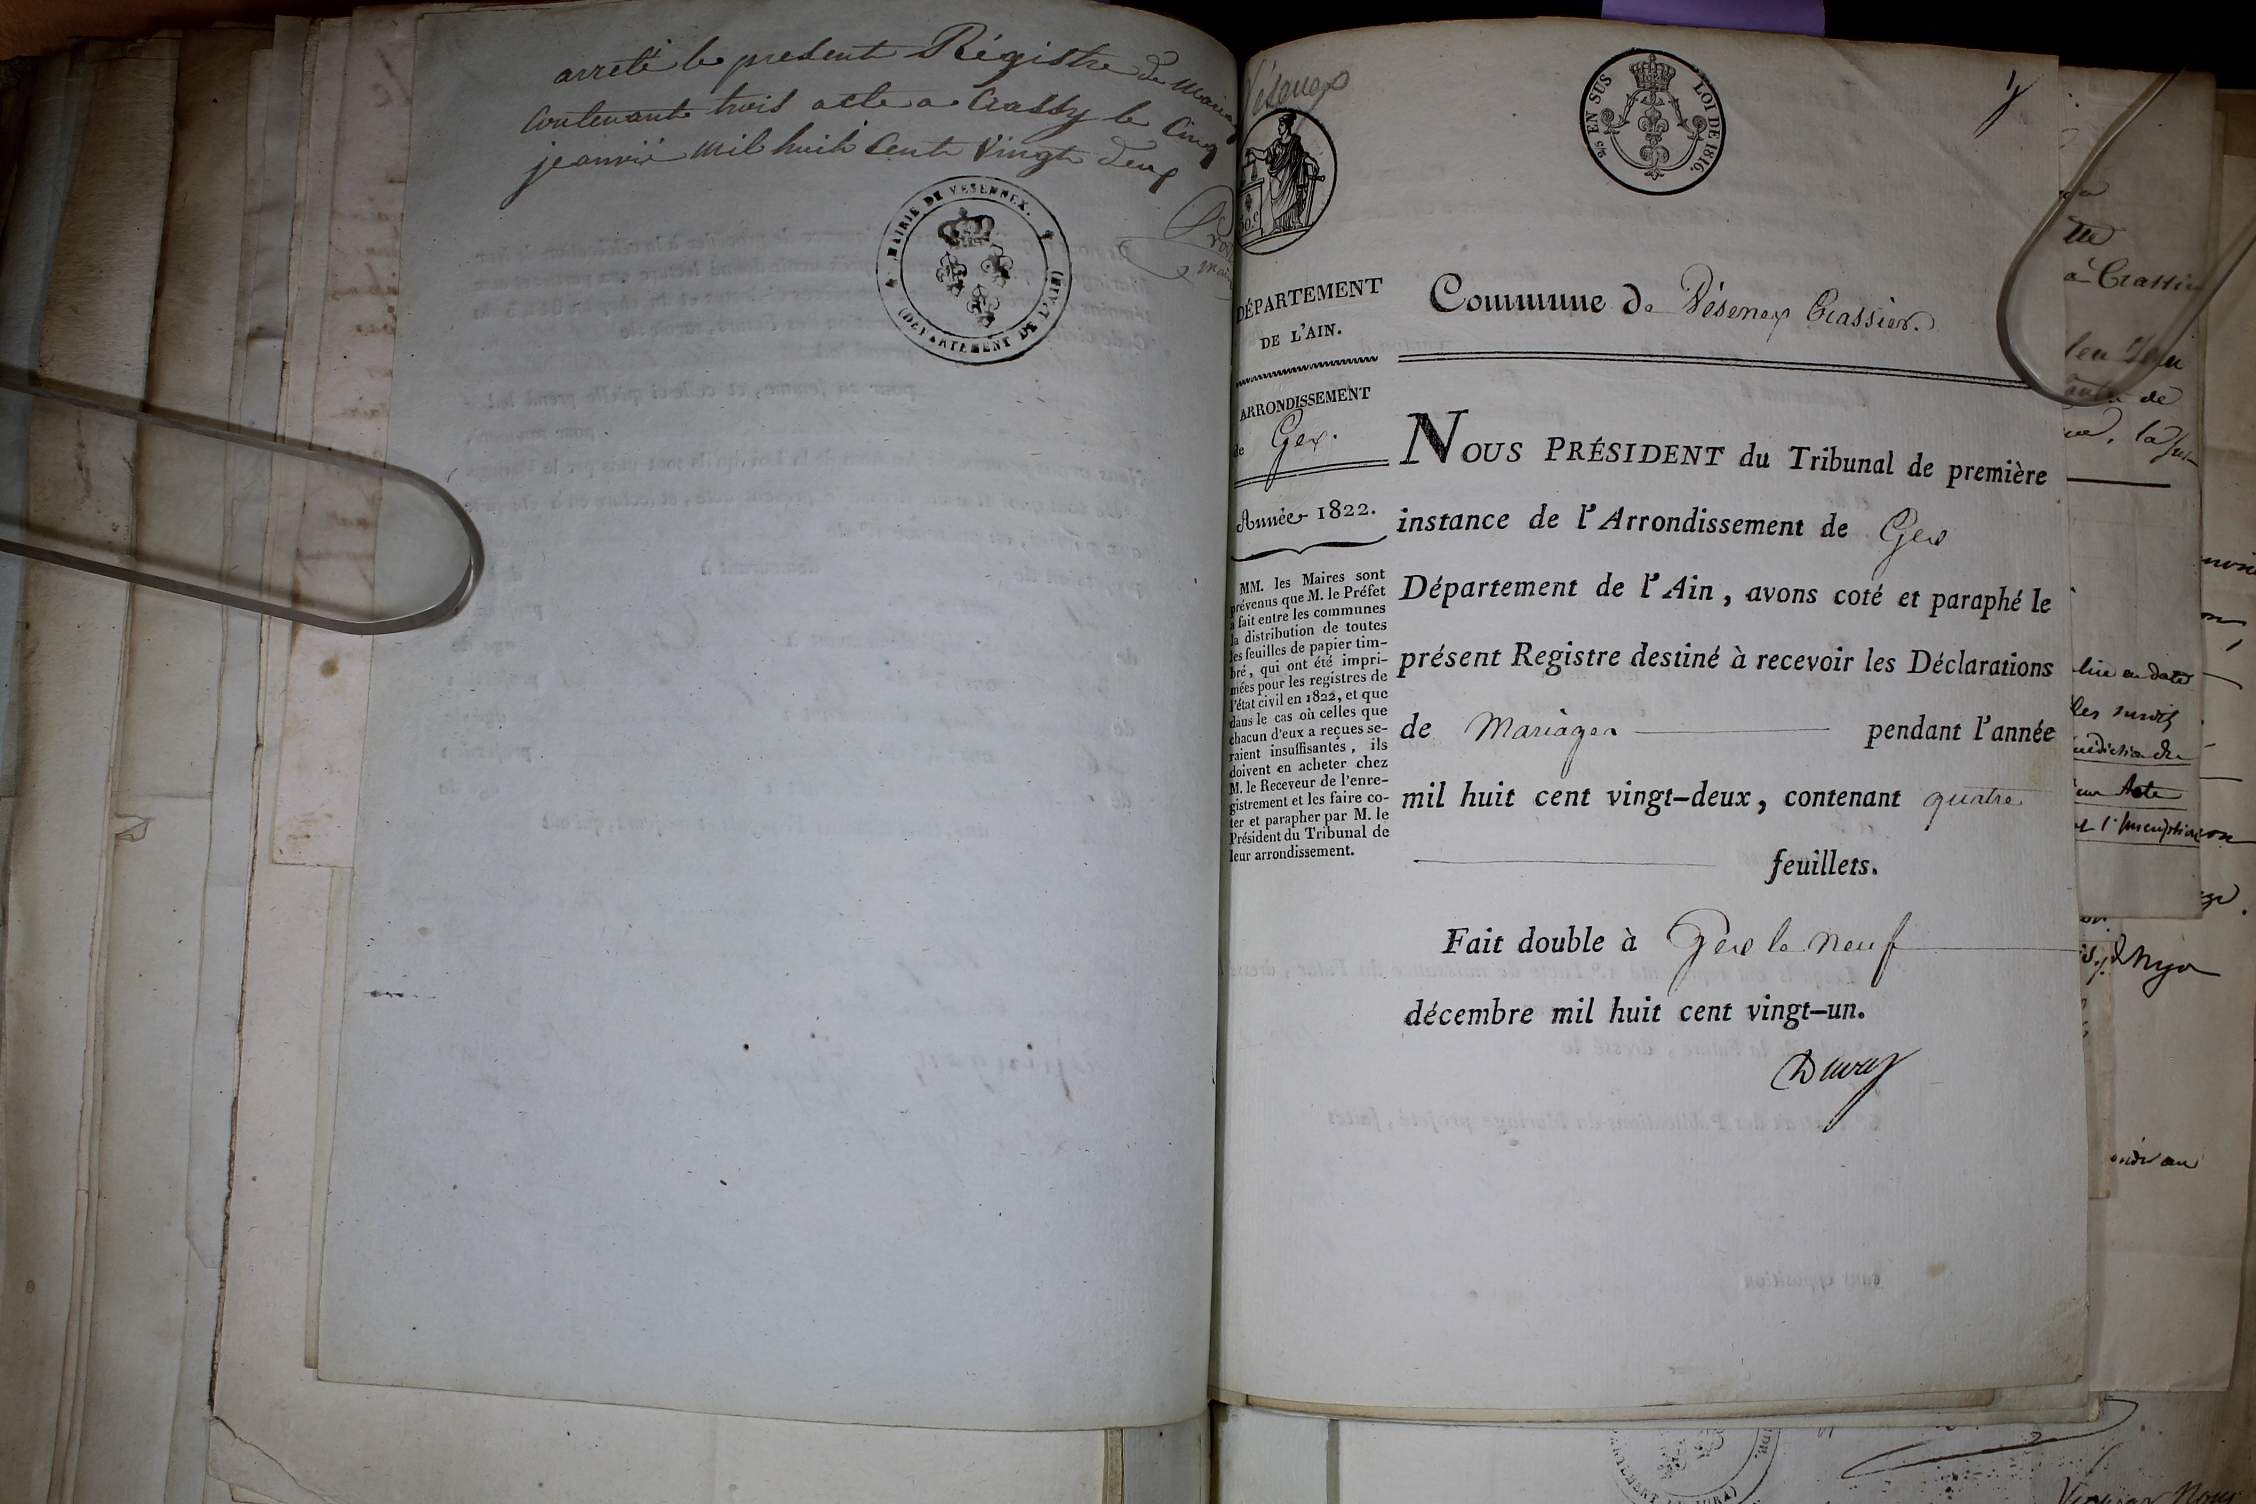 arreté le present Régistre de Mariag
contenant trois acte a Crassy le Cinq
jeanvié mil huit Cent Vingt deux
MAIRIE DE VESENNEX.
(DÉPARTEMENT DE L'AIN)
Vésenex
2/5 EN SUS LOI DE 1816.
50.c
DÉPARTEMENT
DE L'AIN.
ARRONDISSEMENT
de Gex.
Année 1822.
MM. les Maires sont
prévenus que M. le Préfet
a fait entre les communes
la distribution de toutes
les feuilles de papier tim-
bré, qui ont été impri-
mées pour les registres de
l'état civil en 1822, et que
dans le cas où celles que
chacun d'eux a reçues se-
raient insuffisantes, ils
doivent en acheter chez
M. le Receveur de l'enre-
gistrement et les faire co-
ter et parapher par M. le
Président du Tribunal de
leur arrondissement.
Commune de Vésenex Crassier.
NOUS PRÉSIDENT du Tribunal de première
instance de l'Arrondissement de Gex
Département de l'Ain, avons coté et paraphé le
présent Registre destiné à recevoir les Déclarations
de Mariages pendant l'année
mil huit cent vingt-deux, contenant quatre
feuillets.
Fait double à Gex le neuf
décembre mil huit cent vingt-un.
Duvay
tte
à Crassier
de
la
lieu en date
les susdits
Acte
l'Inscription